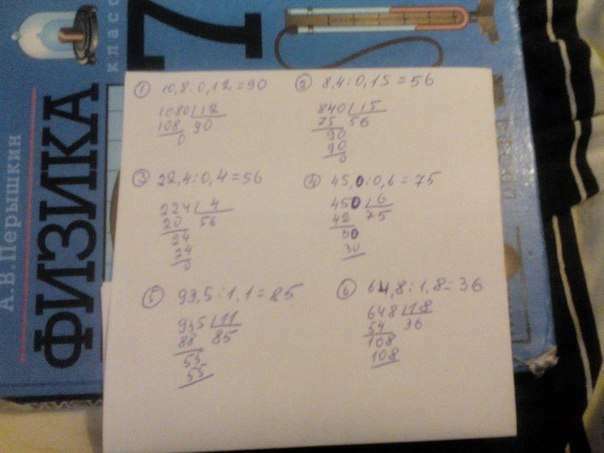 А.В.Перышкин
ФИЗИКА
класс
7
① 10,8:0,12=90
1080 12
108 90
0
② 8,4:0,15=56
840 15
75 56
90
90
0
③ 22,4:0,4=56
224 4
20 56
24
24
0
④ 45,0:0,6=75
450 6
42 75
30
30
⑤ 93,5:1,1=85
935 11
88 85
55
55
⑥ 64,8:1,8=36
648 18
54 36
108
108